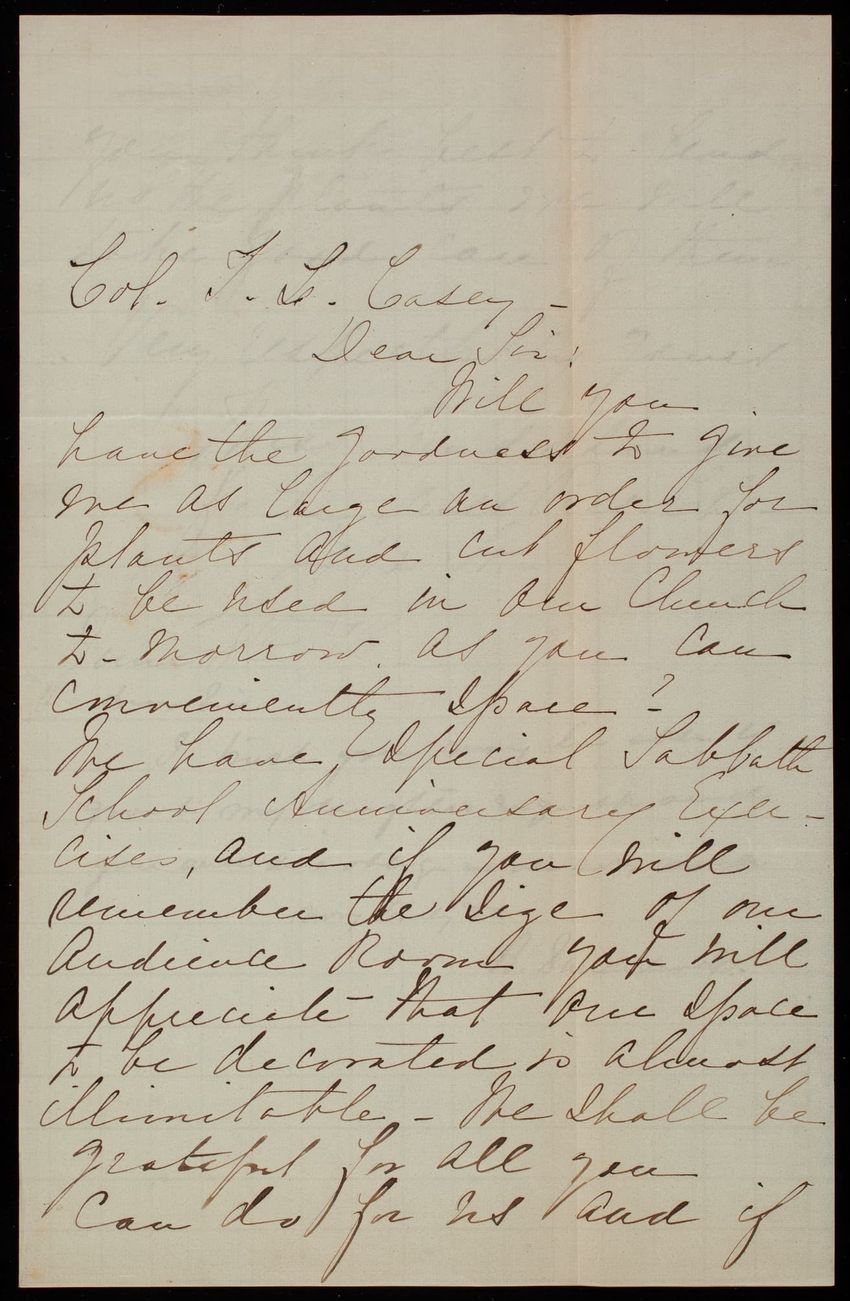 Col. T. L. Casey -
Dear Sir:
Will you
have the goodness to give
me as large an order for
plants and cut flowers
to be used in our Church
to-morrow. as you can
conveniently spare?
We have Special Sabbath
School Anniversary Exer-
cises, and if you will
remember the size of our
Audience Room you will
appreciate that our space
to be decorated is almost
illimitable - We shall be
grateful for all you
can do for us and if